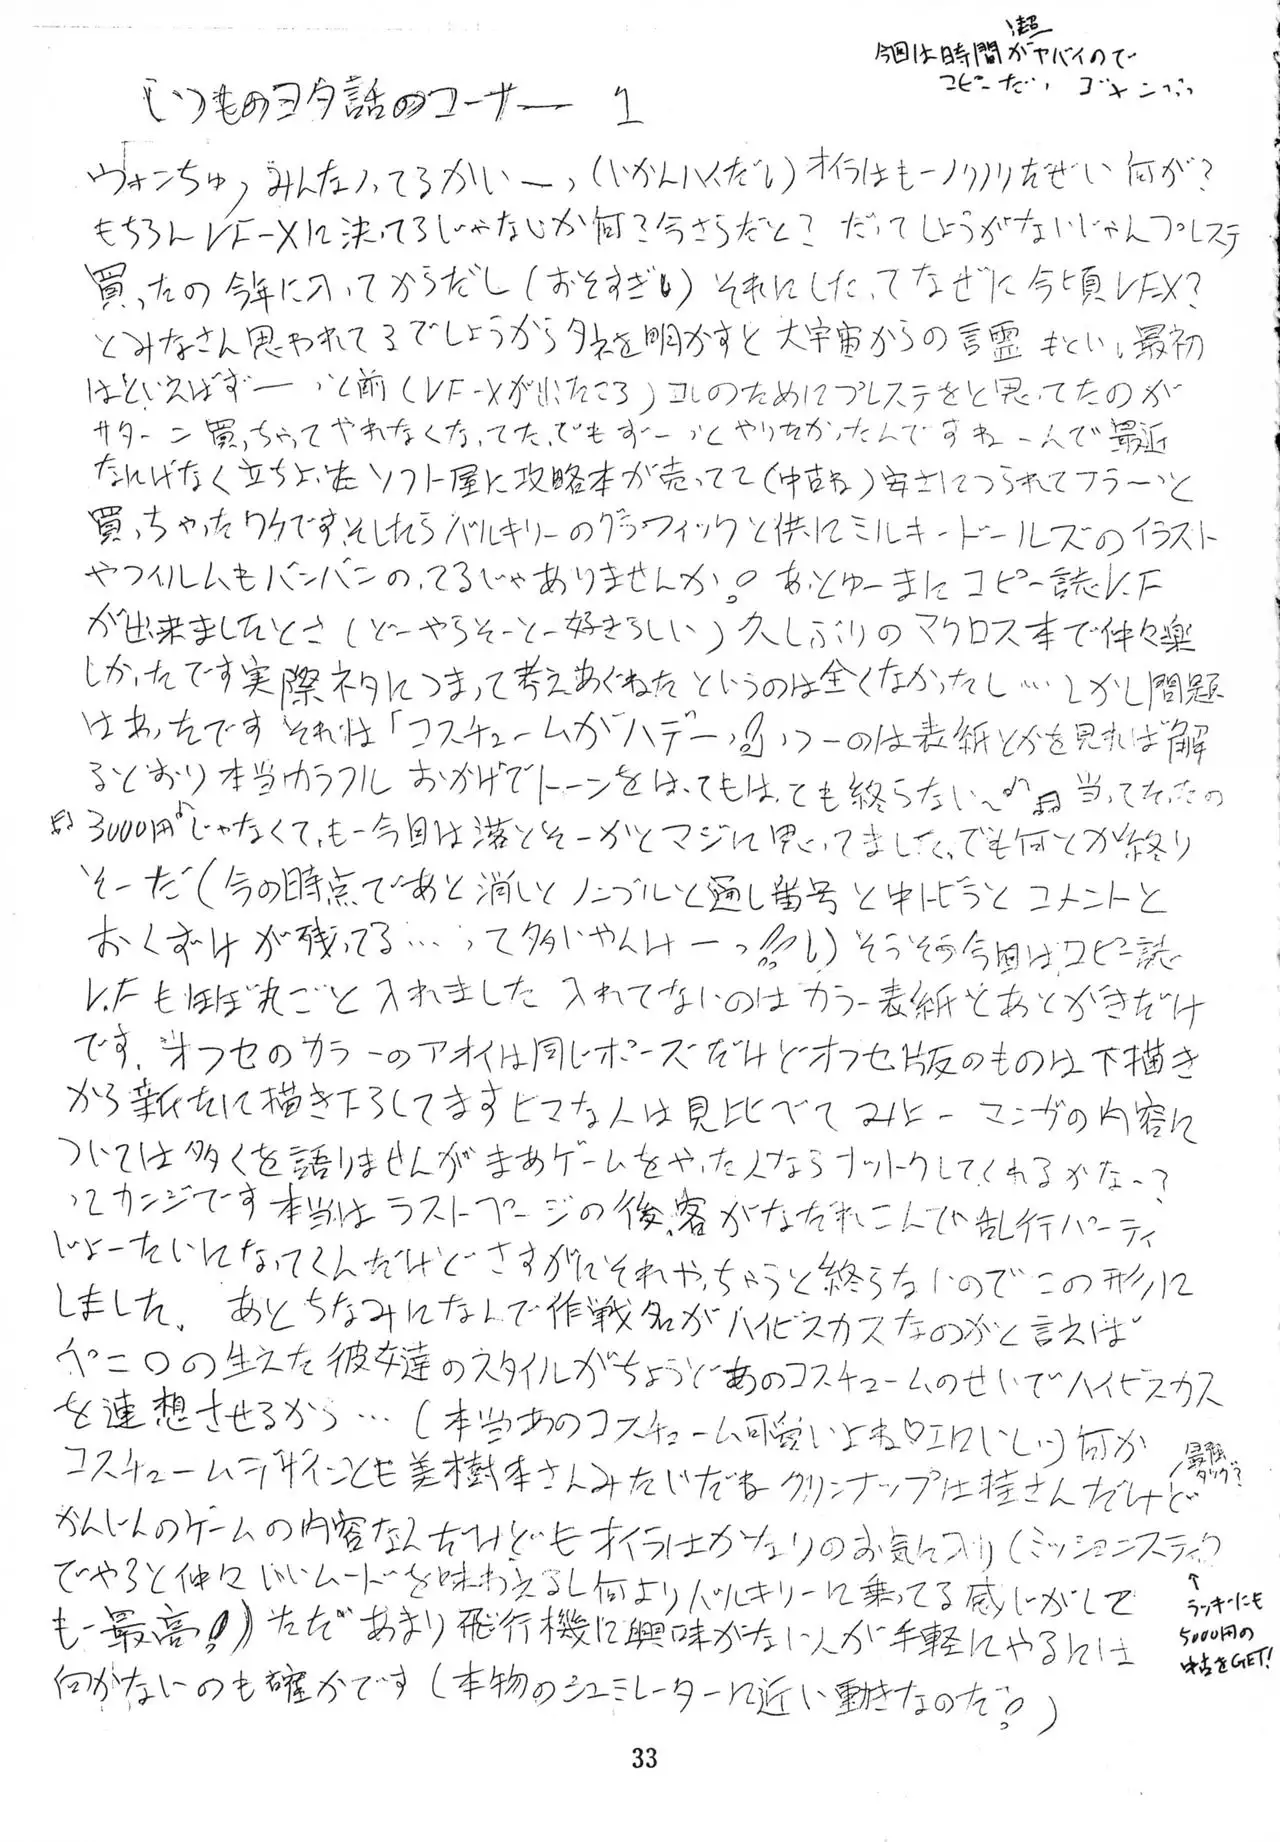 今回は時間が超ヤバイので
コピーだっ ゴメンブゥ
いつものヨタ話のコーナー 1
ウォンちゅっ みんなノってるかいーっ (いかんハイだし) オイラはもーノリノリだぜい 何が?
もちろんVF-Xに決ってるじゃないか何?今さらだと? だってしょうがないじゃんプレステ
買ったの今年に入ってからだし (おそすぎい) それにしたってなぜに今頃VFX?
とみなさん思われてるでしょうからタネを明かすと大宇宙からの言霊 もとい、最初
はといえばずーーっと前 (VF-Xが出たころ) コレのためにプレステをと思ってたのが
サターン買っちゃってやれなくなってた、でもずーっとやりたかったんですねーんで最近
なにげなく立ちよったソフト屋に攻略本が売ってて (中古ね) 安さにつられてフラーっと
買っちゃったワケです、そしたらバルキリーのグラフィックと供にミルキードールズのイラスト
やフィルムもバンバンのってるじゃありませんか!。あっとゆーまにコピー誌V.F
が出来ましたとさ (どーやらそーとー好きらしい) 久しぶりのマクロス本で仲々楽
しかったです実際ネタにつまって考えあぐねたというのは全くなかったし… しかし問題
はあったです それは「コスチュームがハデーっ!!」っつーのは表紙とかを見れば解
るとおり本当カラフル おかげでトーンをはってもはっても終らない〜♪♬ 当ってたったの
♬3000円♪じゃなくて、もー今回は落とそーかとマジに思ってました、でも何とか終り
そーだ (今の時点であと消しとノンブルと通し番号と中トビラとコメントと
おくずけが残ってる……って多いやんけーっ!!い) そうそう今回はコピー誌
V.Fもほぼ丸ごと入れました 入れてないのはカラー表紙とあとがきだけ
です。オフセのカラーのアオイは同じポーズだけどオフセ版のものは下描き
から新たに描き下ろしてますヒマな人は見比べてみよー マンガの内容に
ついては多くを語りませんがまあゲームをやった人ならナットクしてくれるかなー?
ってカンジです本当はラストページの後、客がなだれこんで乱行パーティ
じょーたいになってくんだけどさすがにそれやっちゃうと終らないのでこの形に
しました。 あとちなみになんで作戦名がハイビスカスなのかと言えば
ペニ〇の生えた彼女達のスタイルがちょうどあのコスチュームのせいでハイビスカス
を連想させるから… (本当あのコスチューム可愛いよね♡エロいしい) 何か
コスチュームデザインとも美樹本さんみたいだねクリンナップは桂さんだけど
最強タッグ?
かんじんのゲームの内容なんだけどもオイラはかなりのお気に入り (ミッションスティック
でやると仲々いいムードを味わえるし何よりバルキリーに乗ってる感じがして
も一最高!!) ただあまり飛行機に興味がない人が手軽にやるには
何かないのも確かです (本物のシュミレーターに近い動きなのだ!。)
↑
ラッキーにも
5000円の
中古をGET!
33